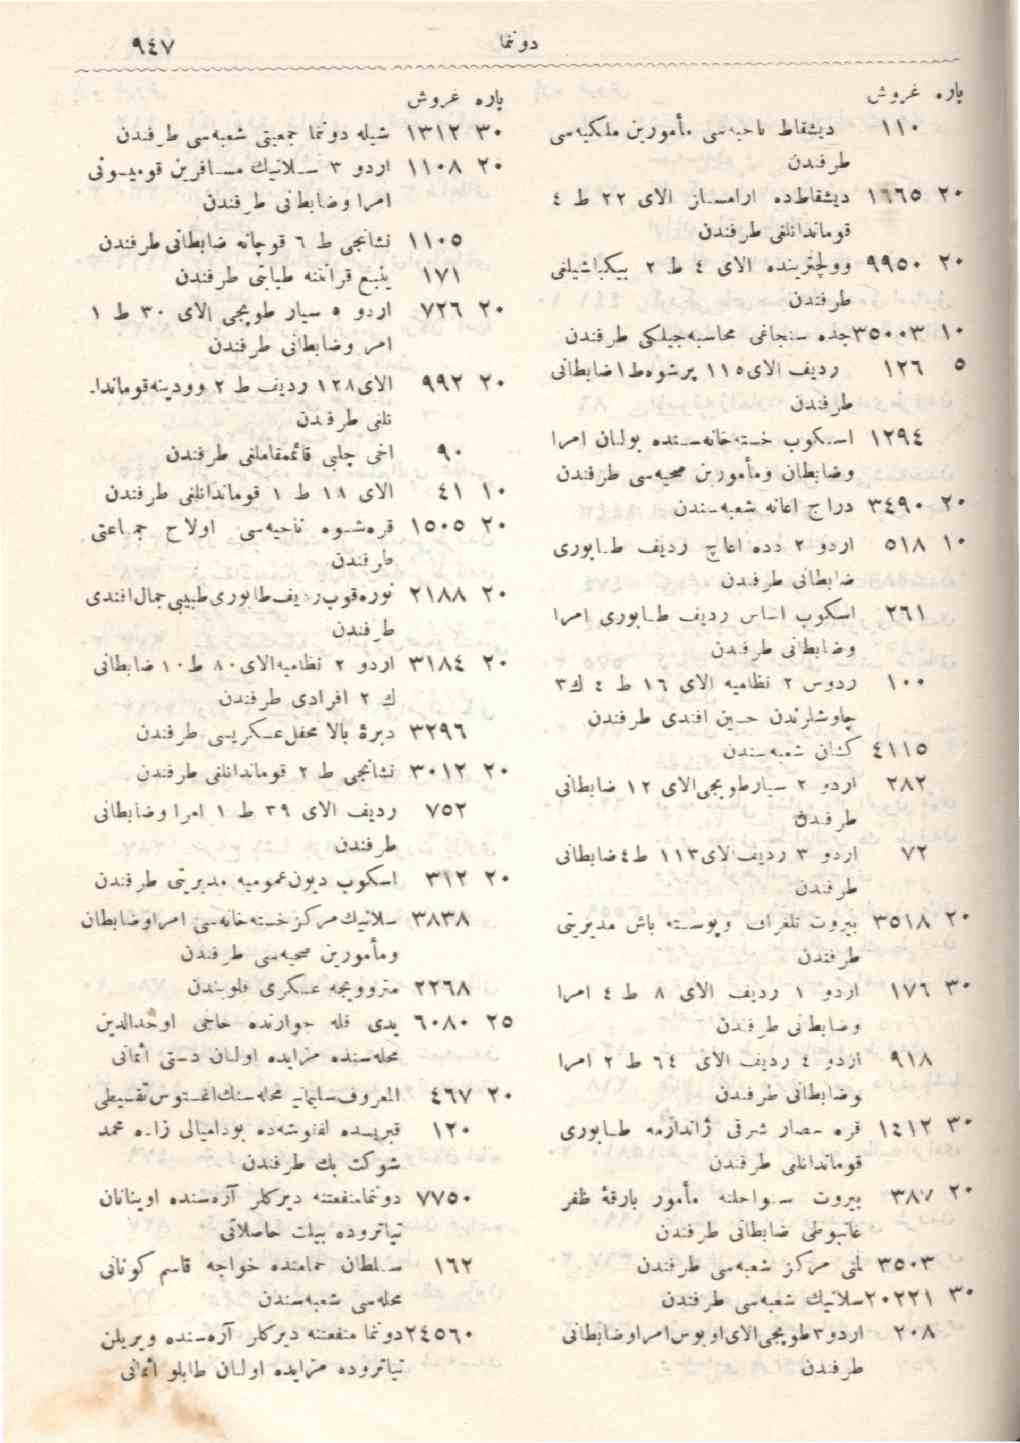 دوننما ٩٤٧
پاره غروش
١١٠ ديشقاط ناحيه‌سى مأمورين ملكيه‌سى
طرفندن
٢٠ ١٦٦٥ ديشقاطده ارامساز الاى ٢٢ ط ٤
قوماندانلغى طرفندن
٢٠ ٩٩٥٠ وولچترينده الاى ٤ ط ٢ بيكباشيلغى
طرفندن
١٠ ٣٥٠٠٣ جده سنجاغى محاسبه‌جيلكى طرفندن
٥ ١٢٦ رديف الاى ١١٥ پرشوه ط ١ ضابطانى
طرفندن
١٢٩٤ اسكوب خسته‌خانه‌سنده بولنان امرا
وضابطان ومأمورين صحيه‌سى طرفندن
٢٠ ٣٤٩٠ دراج اعانه شعبه‌سندن
١٠ ٥١٨ اردو ٢ دده اغاچ رديف طابورى
ضابطانى طرفندن
٢٦١ اسكوب اساس رديف طابورى امرا
وضابطانى طرفندن
١٠٠ ردوس ٢ نظاميه الاى ١٦ ط ٤ ك ٣
چاوشلرندن حسين افندى طرفندن
٤١١٥ كشان شعبه‌سندن
٢٨٢ اردو ٢ سيار طوبجى الاى ١٢ ضابطانى
طرفندن
٧٢ اردو ٣ رديف الاى ١١٣ ط ٤ ضابطانى
طرفندن
٢٠ ٣٥١٨ بيروت تلغراف وپوسته باش مديريتى
طرفندن
٣٠ ١٧٦ اردو ١ رديف الاى ٨ ط ٤ امرا
وضابطانى طرفندن
٩١٨ اردو ٤ رديف الاى ٦٤ ط ٢ امرا
وضابطانى طرفندن
٣٠ ١٤١٢ قره حصار شرقى ژاندارمه طابورى
قوماندانلغى طرفندن
٢٠ ٣٨٧ بيروت سواحلنه مأمور بارقهٔ ظفر
غانبوطى ضابطانى طرفندن
٣٥٠٣ لمنى مركز شعبه‌سى طرفندن
٣٠ ٢٠٢٢١ سلانيك شعبه‌سى طرفندن
٢٠٨ اردو ٣ طوپجى الاى اوبوس امرا وضابطانى
طرفندن
پاره غروش
٣٠ ١٣١٢ شيله دوننما جمعيتى شعبه‌سى طرفندن
٢٠ ١١٠٨ اردو ٣ سلانيك مسافرين قوميسيونى
امرا وضابطانى طرفندن
١١٠٥ نشانجى ط ٦ قوچانه ضابطانى طرفندن
١٧١ ينبع قرانتنه طبابتى طرفندن
٢٠ ٧٢٦ اردو ٥ سيار طوپجى الاى ٣٠ ط ١
امرا وضابطانى طرفندن
٢٠ ٩٩٢ الاى ١٢٨ رديف ط ٢ وودينه قوماندا‌‌
نلغى طرفندن
٩٠ اخى چلبى قائممقاملغى طرفندن
١٠ ٤١ الاى ١٨ ط ١ قوماندانلغى طرفندن
٢٠ ١٥٠٥ قره‌شوه ناحيه‌سى اولاح جماعتى
طرفندن
٢٠ ٢١٨٨ نوره‌قوب رديف طابورى طبيبى جمال افندى
طرفندن
٢٠ ٣١٨٤ اردو ٢ نظاميه الاى ٨٠ ط ١٠ ضابطانى
ك ٢ افرادى طرفندن
٣٢٩٦ دبرهٔ بالا محفل عسكريسى طرفندن
٢٠ ٣٠١٢ نشانجى ط ٢ قوماندانلغى طرفندن
٧٥٢ رديف الاى ٣٩ ط ١ امرا وضابطانى
طرفندن
٢٠ ٣١٢ اسكوب ديون عموميه مديريتى طرفندن
٣٨٣٨ سلانيك مركز خسته‌خانه‌سى امرا وضابطان
ومأمورين صحيه‌سى طرفندن
٢٢٦٨ متروويچه عسكرى قلوبندن
٢٥ ٦٠٨٠ يدى قله جوارنده حاجى اوحدالدين
محله‌سنده مزايده اولنان دستى اثمانى
٢٠ ٤٦٧ المعروف سليمانيه محله‌سنك اغستوس تقسيطى
١٢٠ قبريسده لفقوشه‌ده بوداميالى زاده محمد
شوكت بك طرفندن
٧٧٥٠ دوننما منفعتنه ديركلر آره‌سنده اوينانان
تياتروده بيلت حاصلاتى
١٦٢ سلطان حمامنده خواجه قاسم كونانى
محله‌سى شعبه‌سندن
٢٤٥٦٠ دوننما منفعتنه ديركلر آره‌سنده ويريلن
تياتروده مزايده اولنان طابلو اثمانى